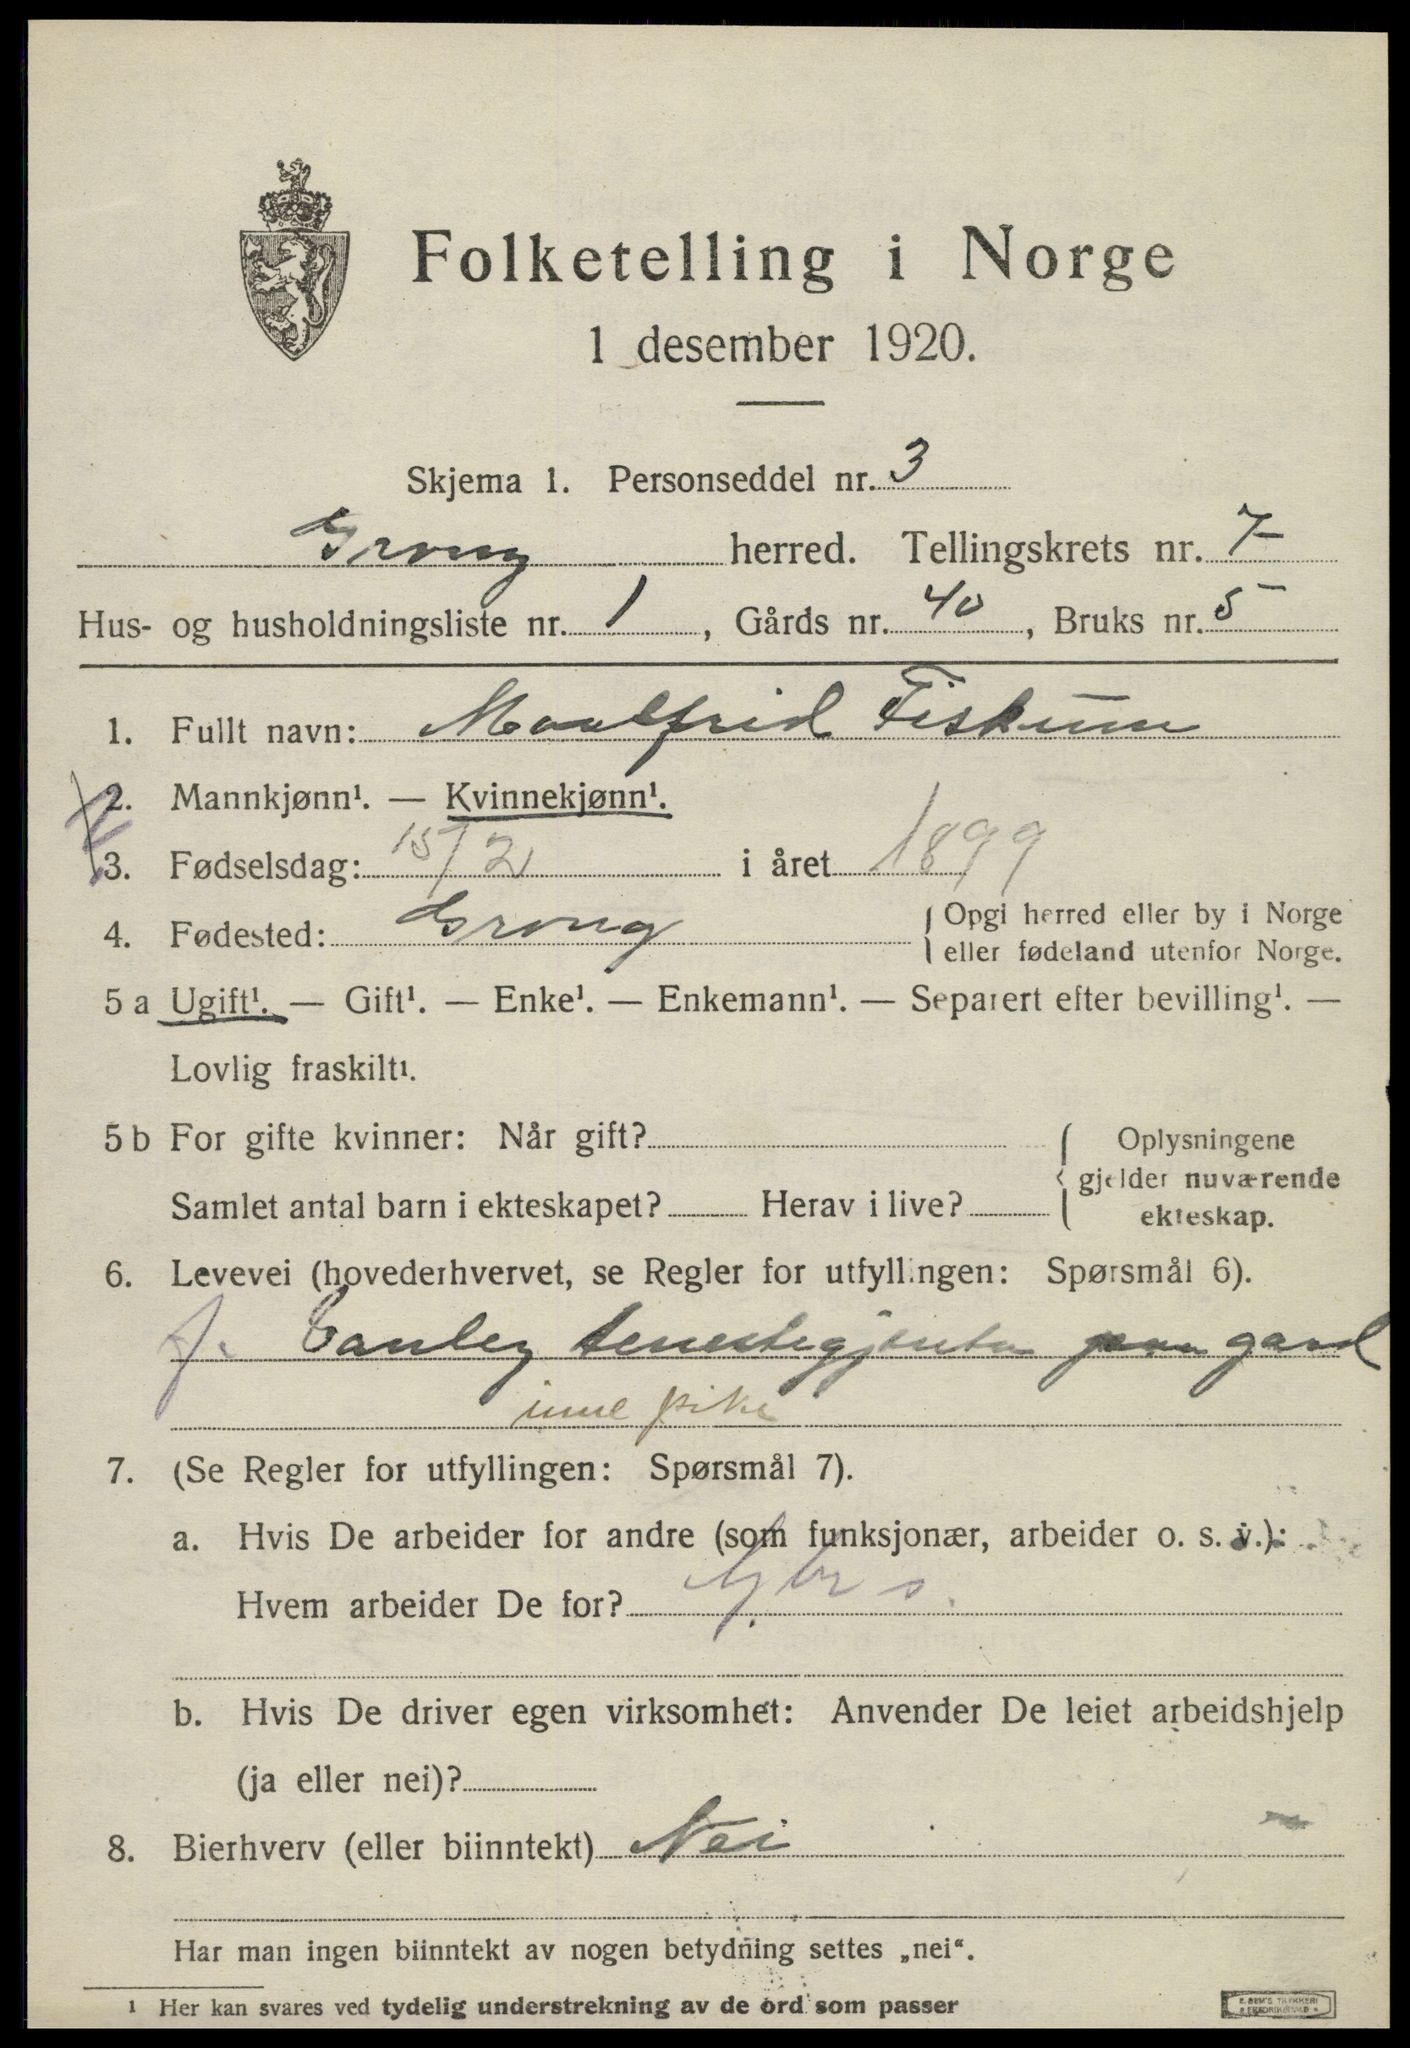 Folketelling i Norge
1 desember 1920.
Skjema 1. Personseddel nr. 3
Grong herred. Tellingskrets nr. 7
Hus- og husholdningsliste nr. 1, Gårds nr. 40, Bruks nr. 5
1. Fullt navn: Maalfrid Fiskum
2. Mannkjønn¹. — Kvinnekjønn¹.
3. Fødselsdag: 15/2 i året 1899
4. Fødested: Grong { Opgi herred eller by i Norge
eller fødeland utenfor Norge.
5 a Ugift¹. — Gift¹. — Enke¹. — Enkemann¹. — Separert efter bevilling¹. —
Lovlig fraskilt¹.
5 b For gifte kvinner: Når gift? { Oplysningene
gjelder nuværende
Samlet antal barn i ekteskapet? Herav i live? ekteskap.
6. Levevei (hovederhvervet, se Regler for utfyllingen: Spørsmål 6).
tenestegjenta paa gard
inne pike
7. (Se Regler for utfyllingen: Spørsmål 7).
a. Hvis De arbeider for andre (som funksjonær, arbeider o. s. v.):
Hvem arbeider De for?
b. Hvis De driver egen virksomhet: Anvender De leiet arbeidshjelp
(ja eller nei)?
8. Bierhverv (eller biinntekt) Nei
Har man ingen biinntekt av nogen betydning settes „nei“.
¹ Her kan svares ved tydelig understrekning av de ord som passer